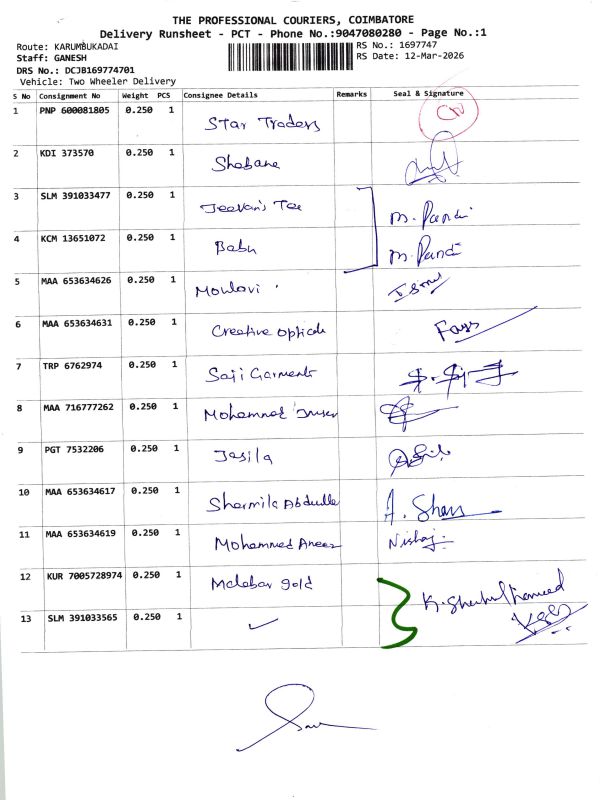 THE PROFESSIONAL COURIERS, COIMBATORE
Delivery Runsheet - PCT - Phone No.:9047080280 - Page No.:1
Route: KARUMBUKADAI
RS No.: 1697747
Staff: GANESH
RS Date: 12-Mar-2026
DRS No.: DCJB169774701
Vehicle: Two Wheeler Delivery
S No Consignment No Weight PCS Consignee Details Remarks Seal & Signature
1 PNP 600081805 0.250 1 Star Traders
2 KDI 373570 0.250 1 Shabana
3 SLM 391033477 0.250 1 Jeevan's Tea M. Pandi
4 KCM 13651072 0.250 1 Babu M. Pandi
5 MAA 653634626 0.250 1 Moulovi
6 MAA 653634631 0.250 1 Creative opticals
7 TRP 6762974 0.250 1 Saji Garments
8 MAA 716777262 0.250 1 Mohammed
9 PGT 7532206 0.250 1 Jasila
10 MAA 653634617 0.250 1 Sharmila Abdulla A. Shans
11 MAA 653634619 0.250 1 Mohammed Anees Nishaj
12 KUR 7005728974 0.250 1 Malabar gold K. Shahul Hameed
13 SLM 391033565 0.250 1 ✓